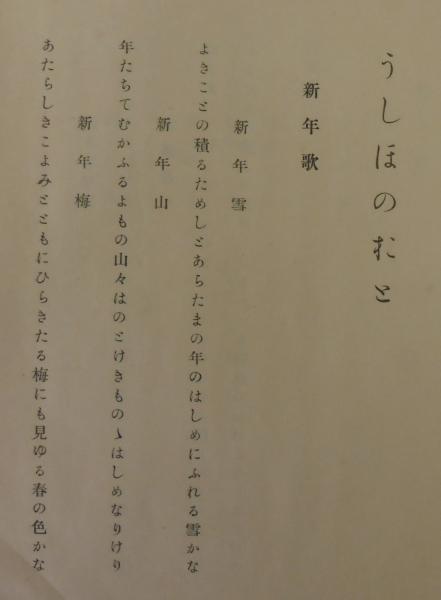 うしほのおと
新年歌
新年雪
よきことの積るためしとあらたまの年のはしめにふれる雪かな
新年山
年たちてむかふるよもの山々はのとけきものゝはしめなりけり
新年梅
あたらしきこよみとともにひらきたる梅にも見ゆる春の色かな